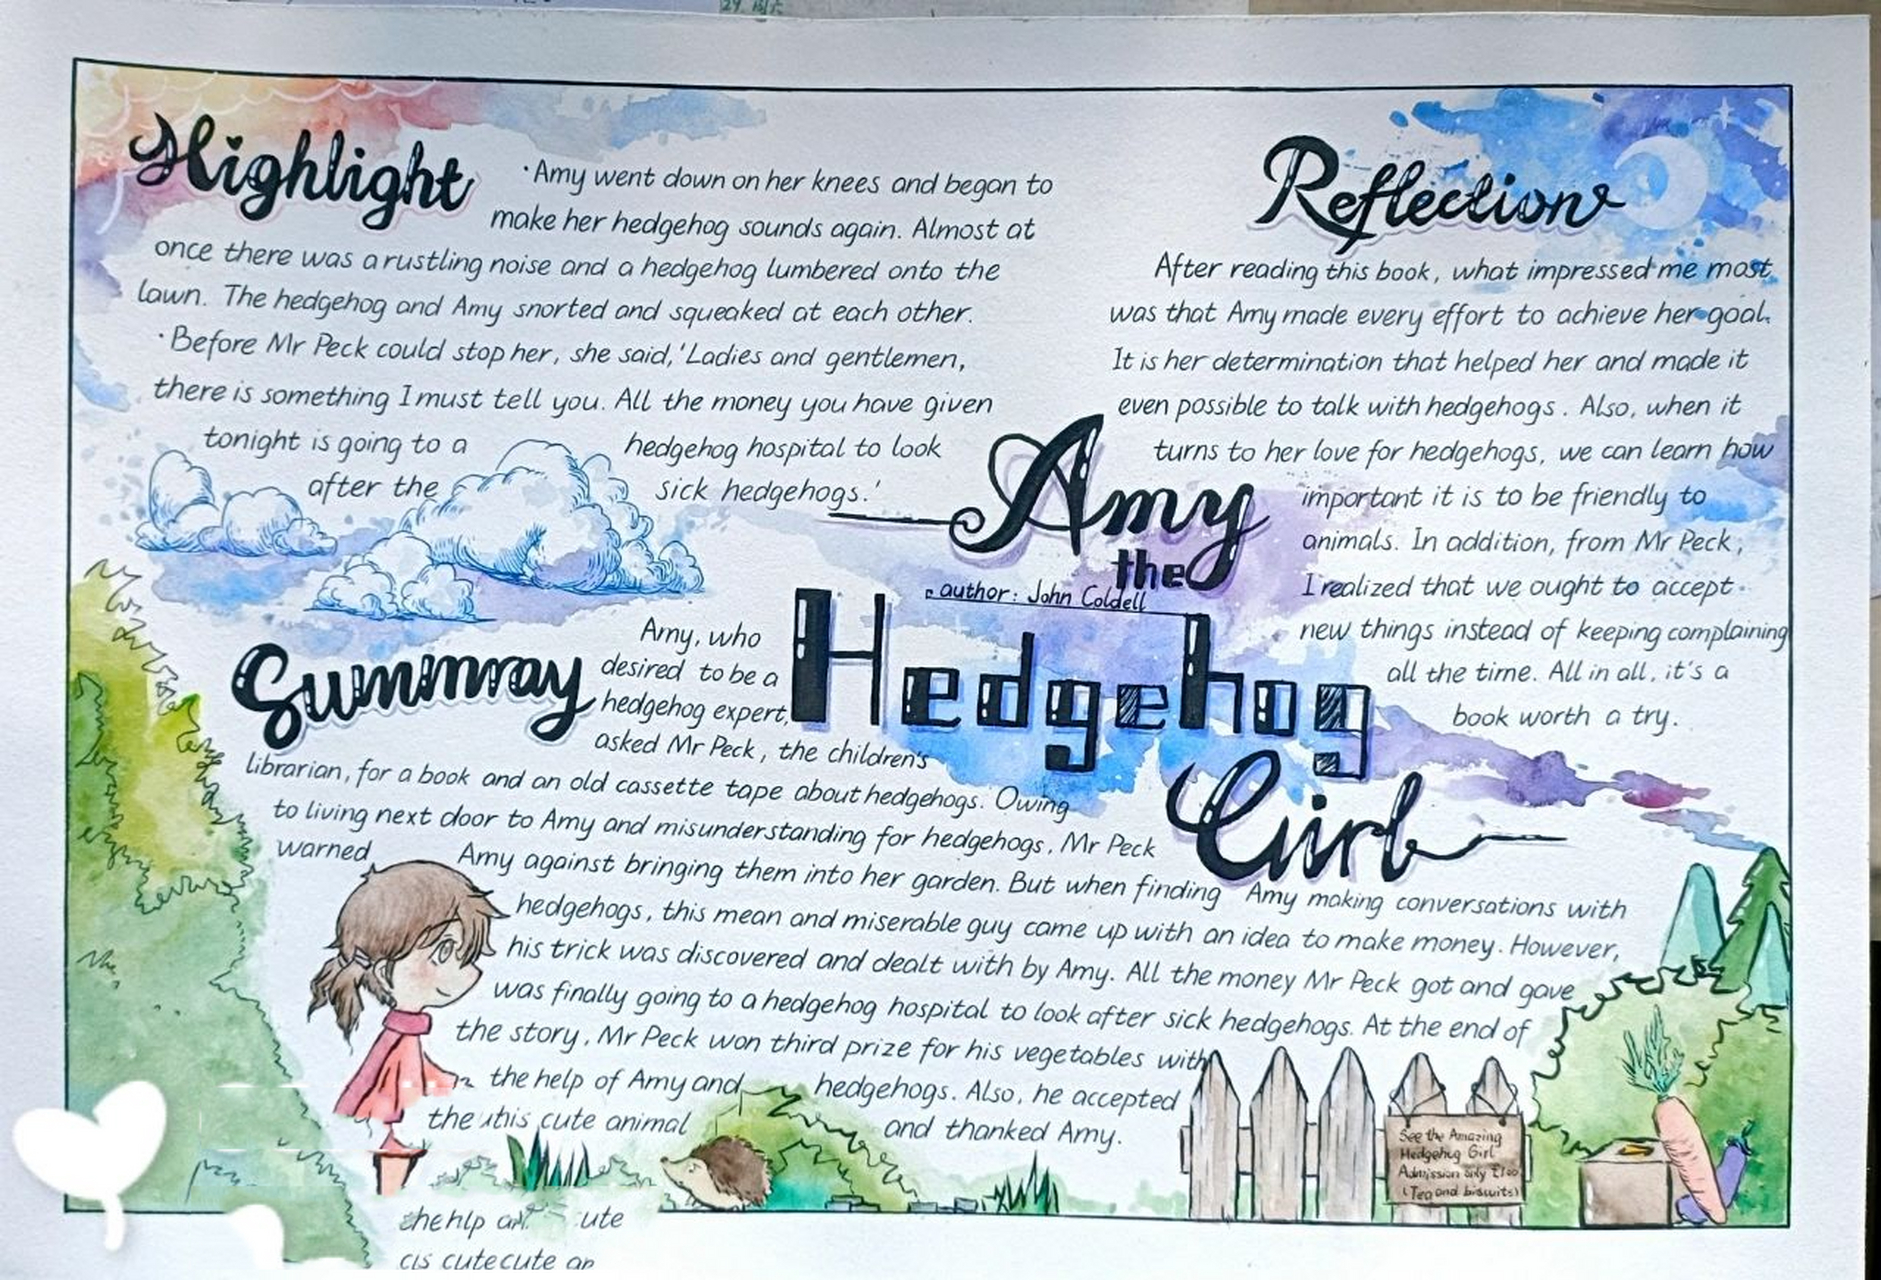 Highlight
·Amy went down on her knees and began to
make her hedgehog sounds again. Almost at
once there was a rustling noise and a hedgehog lumbered onto the
lawn. The hedgehog and Amy snorted and squeaked at each other.
·Before Mr Peck could stop her, she said, 'Ladies and gentlemen,
there is something I must tell you. All the money you have given
tonight is going to a hedgehog hospital to look
after the sick hedgehogs.'
Reflection
After reading this book, what impressed me most
was that Amy made every effort to achieve her goal.
It is her determination that helped her and made it
even possible to talk with hedgehogs. Also, when it
turns to her love for hedgehogs, we can learn how
important it is to be friendly to
animals. In addition, from Mr Peck,
I realized that we ought to accept
new things instead of keeping complaining
all the time. All in all, it's a
book worth a try.
Amy
the
author: John Coldell
Hedgehog
Girl
Summray
Amy, who
desired to be a
hedgehog expert,
asked Mr Peck, the children's
librarian, for a book and an old cassette tape about hedgehogs. Owing
to living next door to Amy and misunderstanding for hedgehogs, Mr Peck
warned Amy against bringing them into her garden. But when finding Amy making conversations with
hedgehogs, this mean and miserable guy came up with an idea to make money. However,
his trick was discovered and dealt with by Amy. All the money Mr Peck got and gave
was finally going to a hedgehog hospital to look after sick hedgehogs. At the end of
the story, Mr Peck won third prize for his vegetables with
the help of Amy and hedgehogs. Also, he accepted
this cute animal and thanked Amy.
See the Amazing
Hedgehog Girl
Admission only £1.00
(Tea and biscuits)
ute
cute